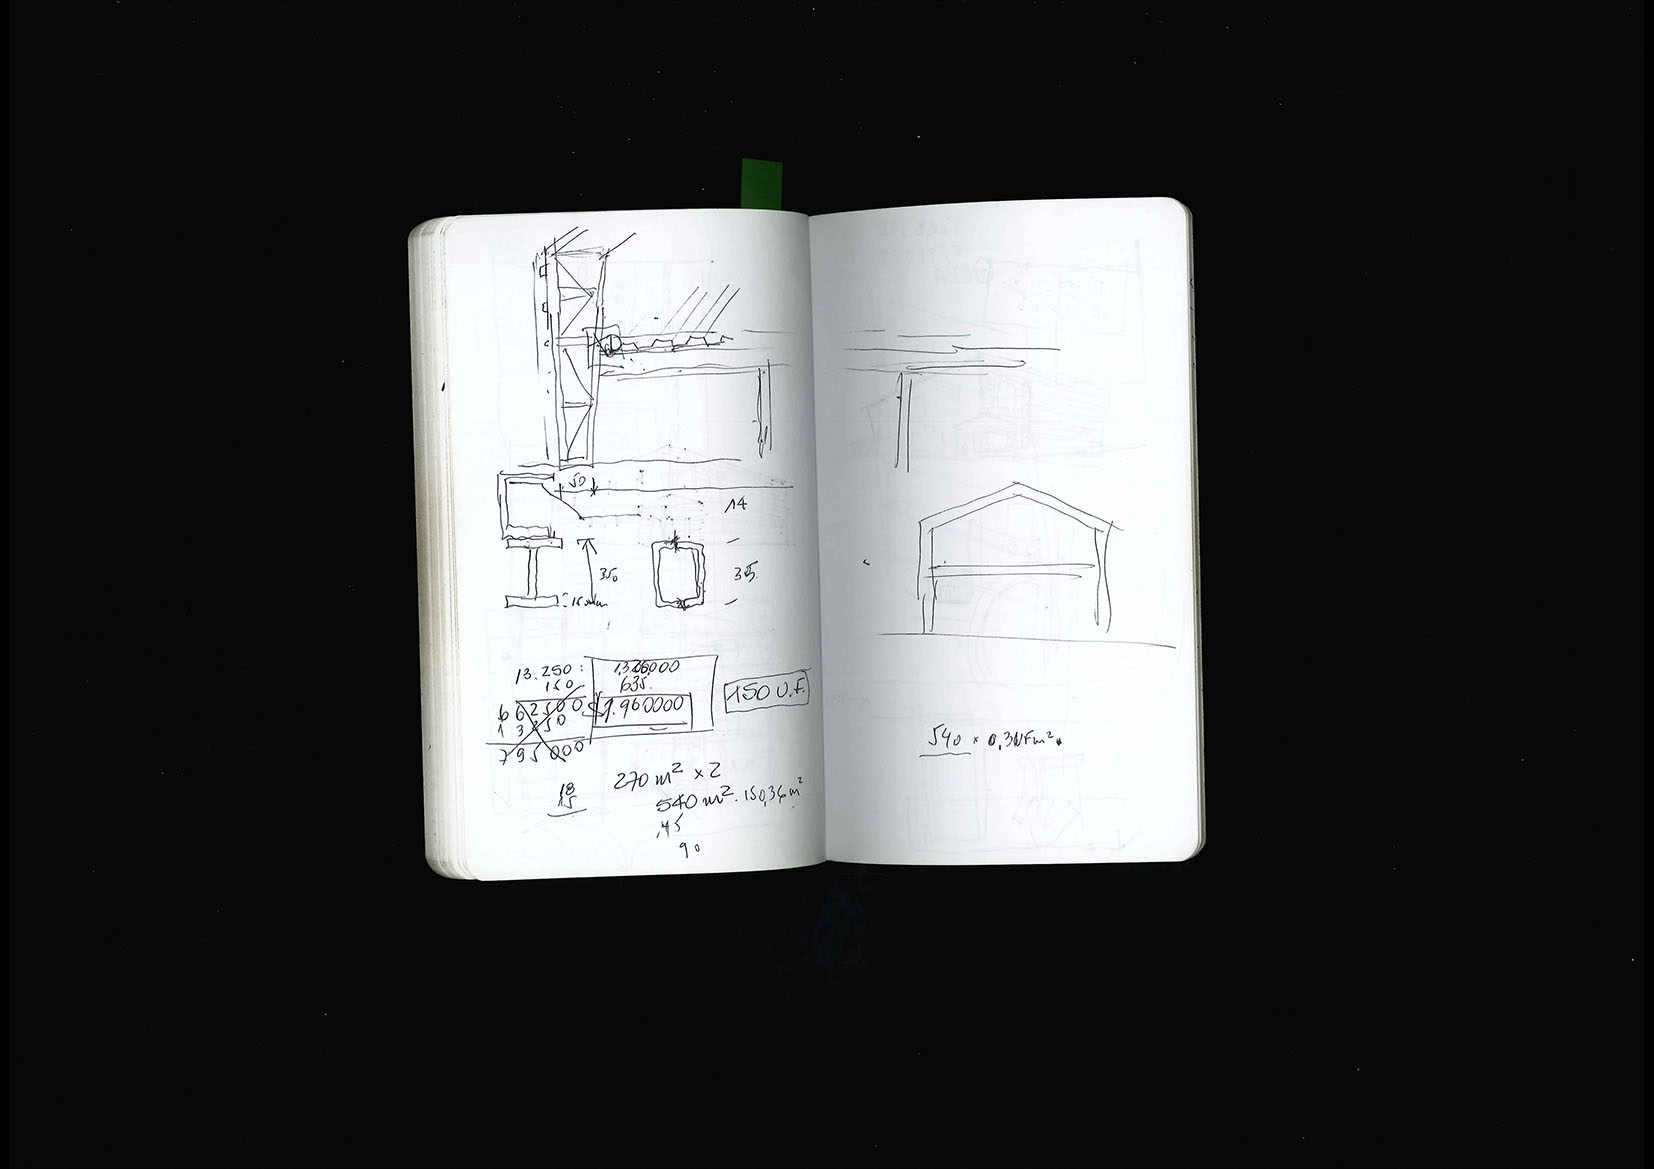 50
14
350
35
13.250 :
150
662500
13250
795000
1,325,000
635.
1.960000
150 U.F.
18
15
270 m² x 2
540 m².
45
90
540 x 0,3 UF m².